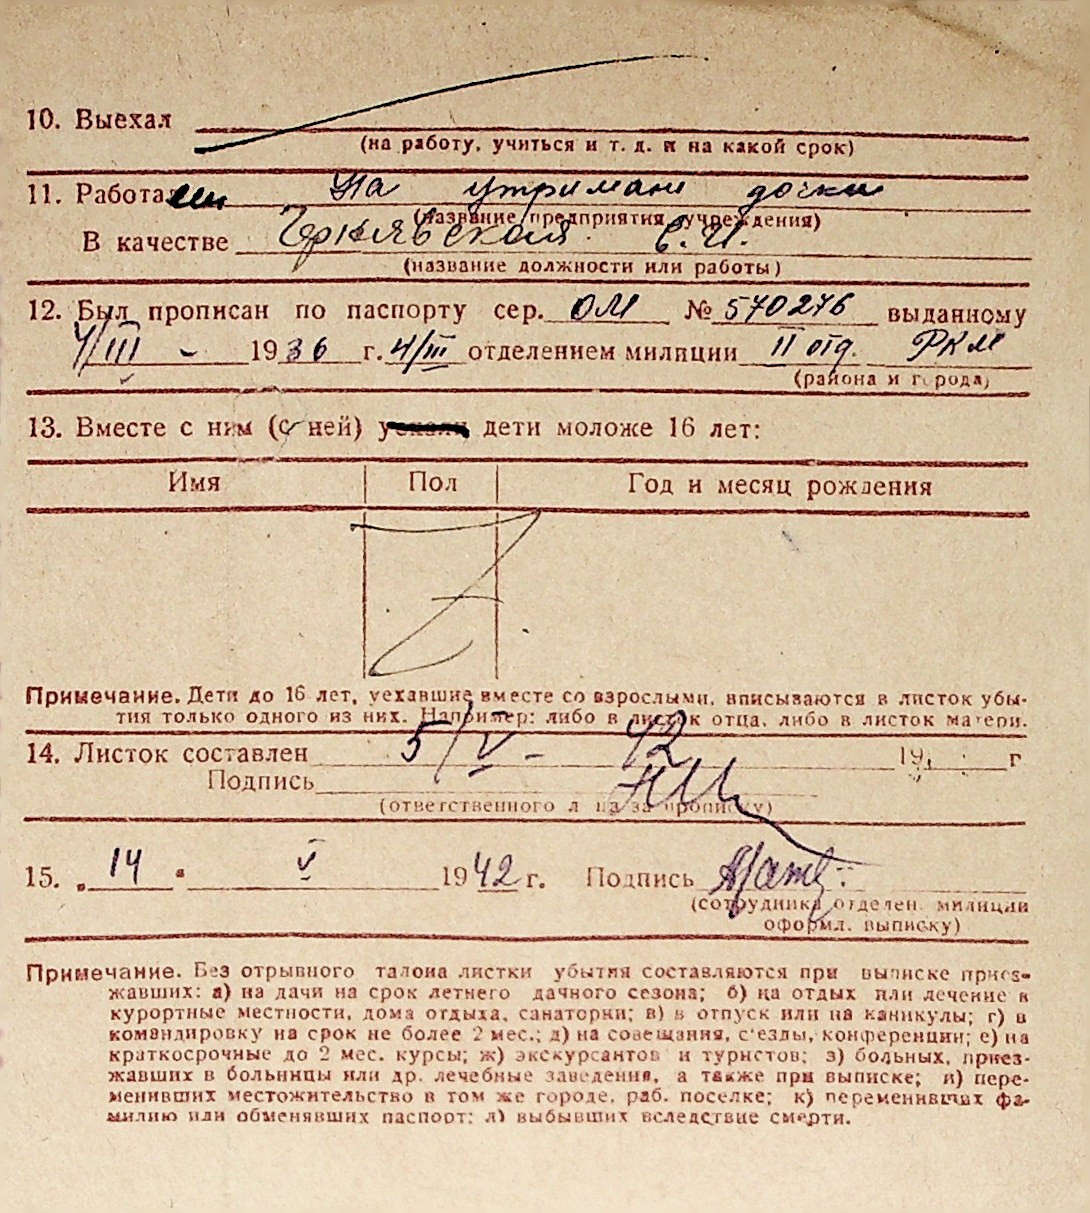 10. Выехал
(на работу, учиться и т. д. и на какой срок)
11. Работа На утримани дочки
(название предприятия, учреждения)
В качестве Чернявская Є. И.
(название должности или работы)
12. Был прописан по паспорту сер. ОМ № 570276 выданному
4/III - 1936 г. 4/III отделением милиции II отд. РКМ
(района и города)
13. Вместе с ним (с ней) дети моложе 16 лет:
Имя Пол Год и месяц рождения
Примечание. Дети до 16 лет, уехавшие вместе со взрослыми, вписываются в листок убы-
тия только одного из них. Например: либо в листок отца, либо в листок матери.
14. Листок составлен 5/V - 42 19 г
Подпись
(ответственного лица за прописку)
15. „14 " V 1942 г. Подпись
(сотрудника отделен. милиции
оформл. выписку)
Примечание. Без отрывного талона листки убытия составляются при выписке приез-
жавших: а) на дачи на срок летнего дачного сезона; б) на отдых или лечение в
курортные местности, дома отдыха, санатории; в) в отпуск или на каникулы; г) в
командировку на срок не более 2 мес.; д) на совещания, с'езды, конференции; е) на
краткосрочные до 2 мес. курсы; ж) экскурсантов и туристов; з) больных, приез-
жавших в больницы или др. лечебные заведения, а также при выписке; и) пере-
менивших местожительство в том же городе, раб. поселке; к) переменивших фа-
милию или обменявших паспорт; л) выбывших вследствие смерти.